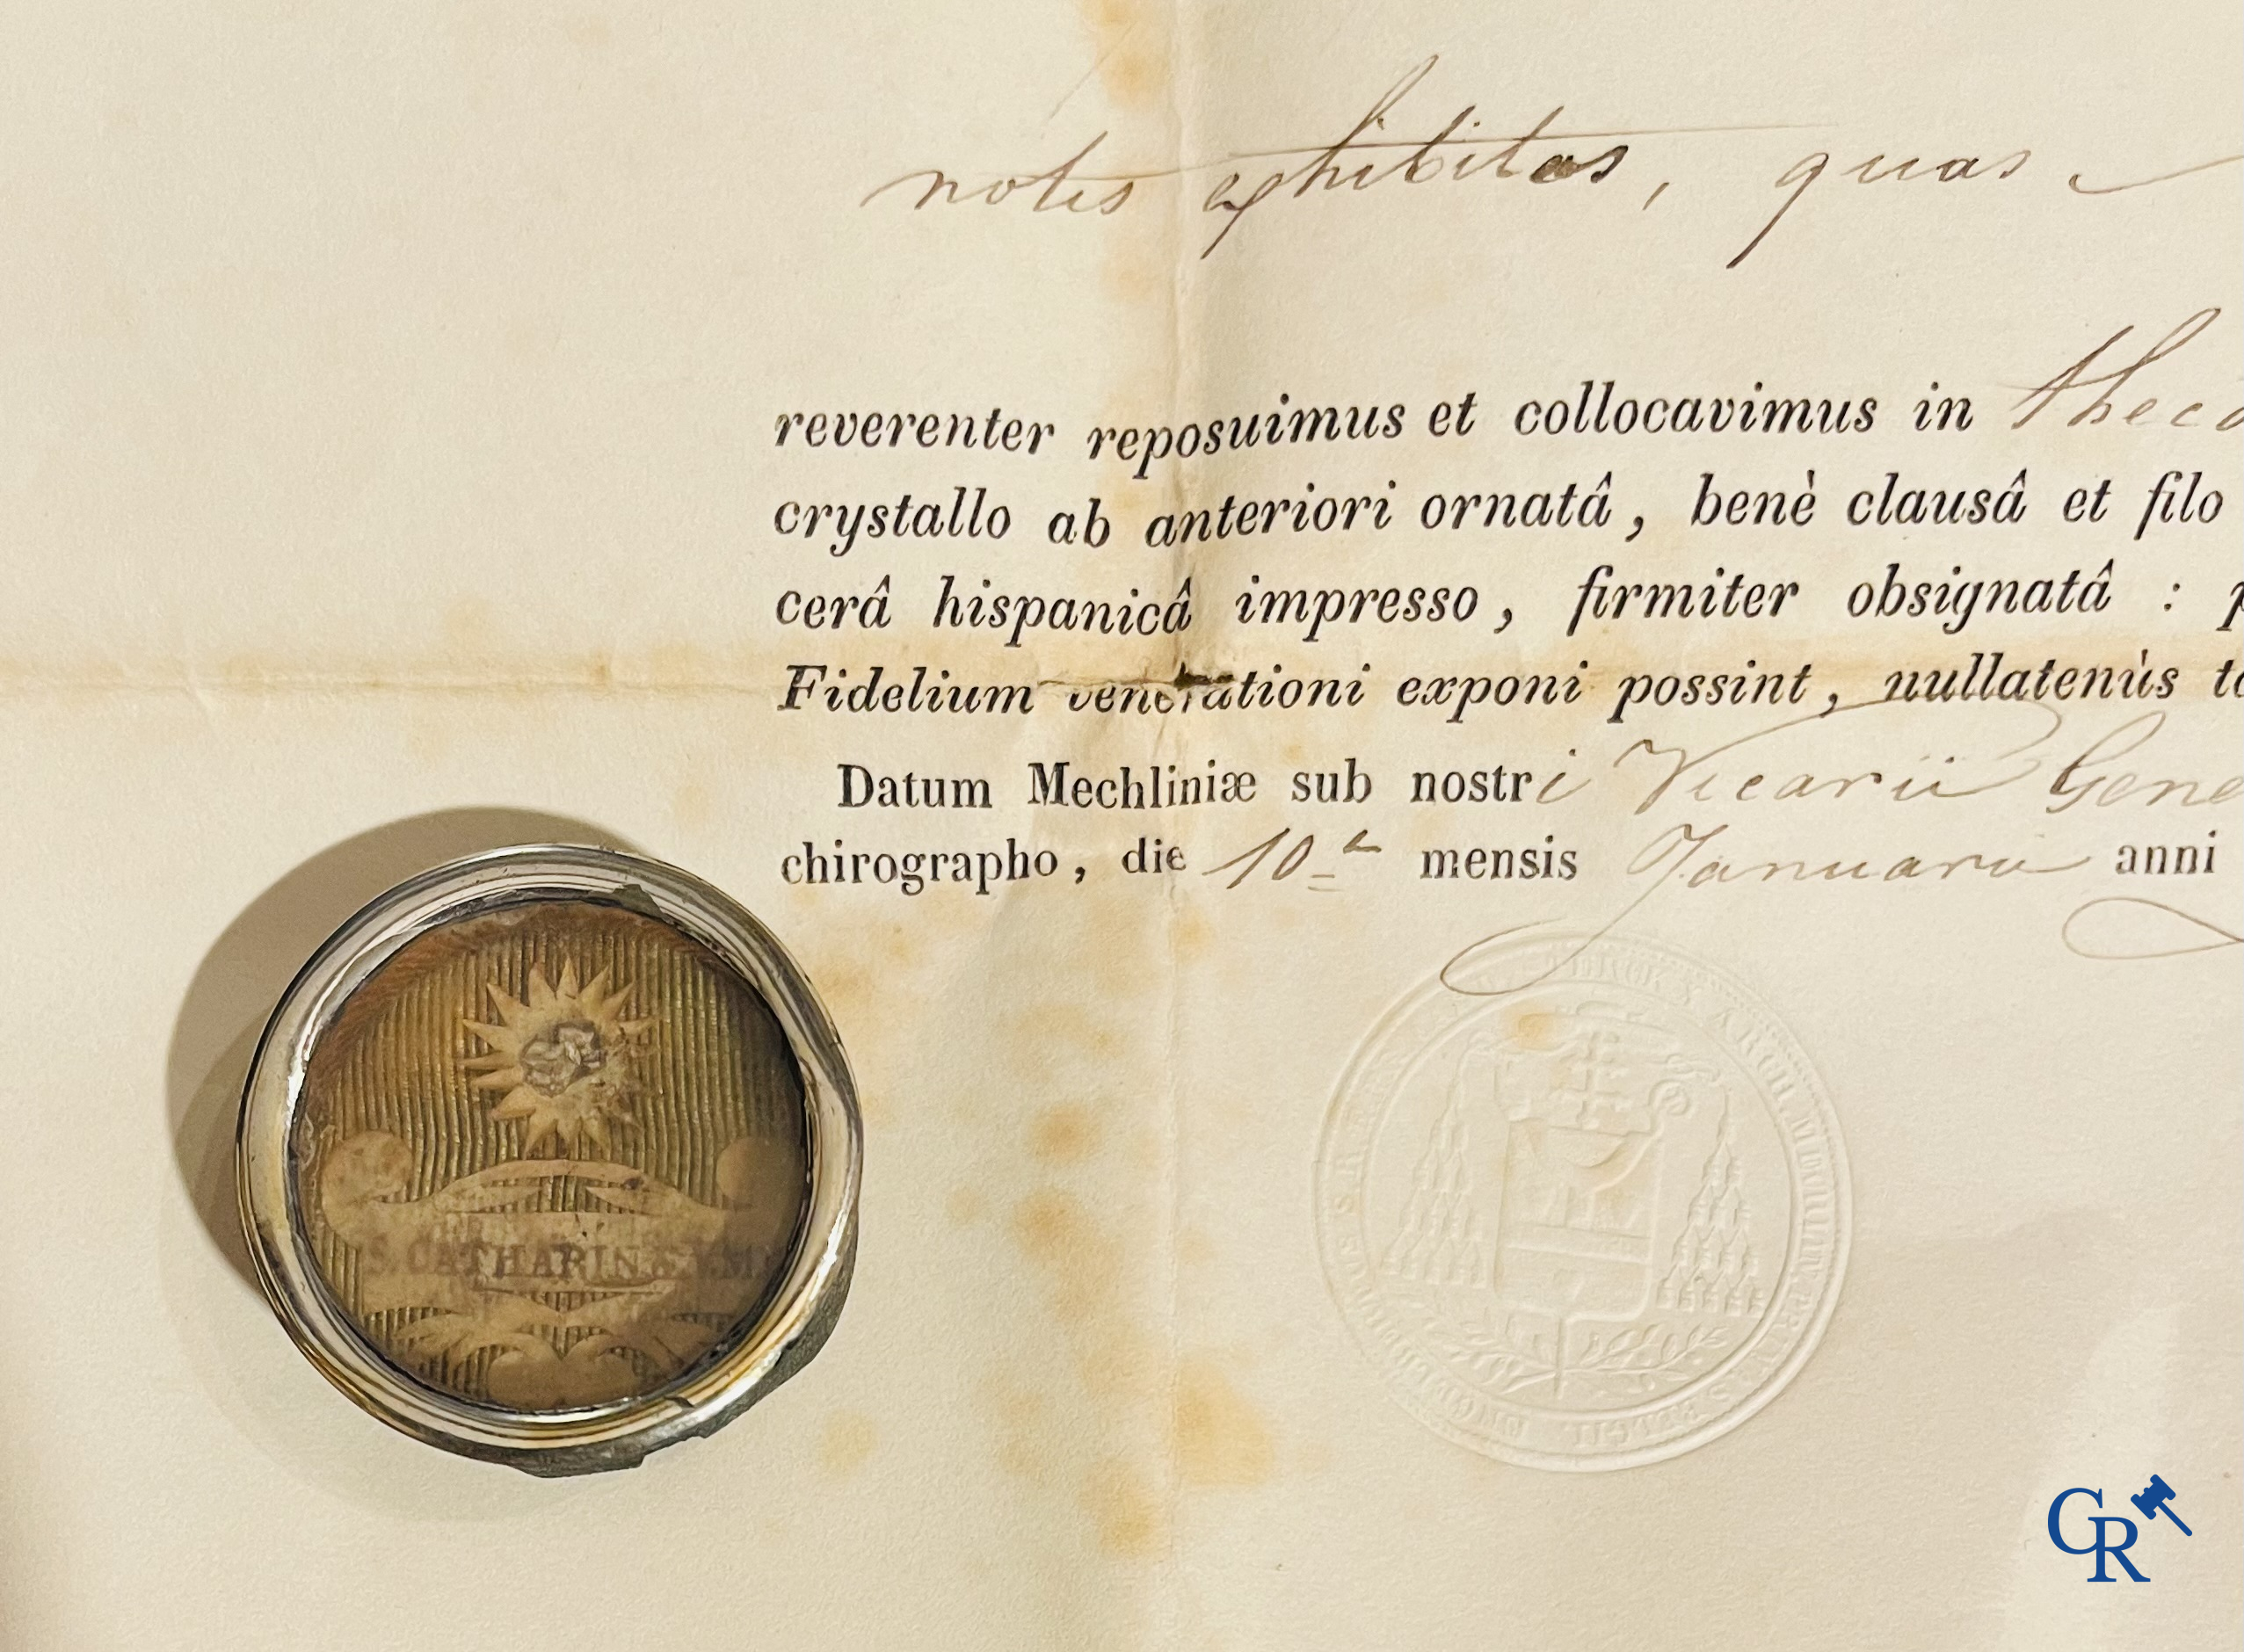 notis exhibitas, quas
reverenter reposuimus et collocavimus in theca
crystallo ab anteriori ornatâ, benè clausâ et filo
cerâ hispanicâ impresso, firmiter obsignatâ : p
Fidelium venerationi exponi possint, nullatenùs to
Datum Mechliniæ sub nostri Vicarii Gene
chirographo, die 10â mensis Januarii anni
S. CATHARINÆ. V. M.
CR